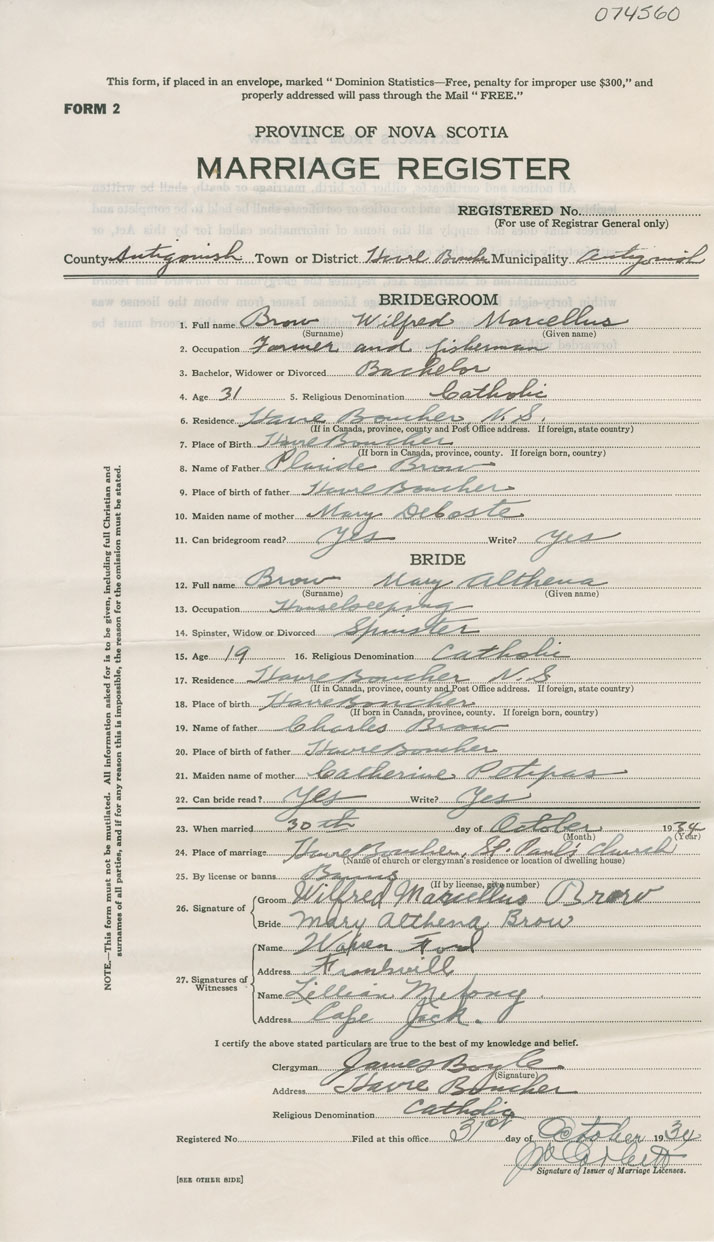 074560
This form, if placed in an envelope, marked " Dominion Statistics—Free, penalty for improper use $300," and
properly addressed will pass through the Mail " FREE."
FORM 2
PROVINCE OF NOVA SCOTIA
MARRIAGE REGISTER
REGISTERED No.
(For use of Registrar General only)
County Antigonish Town or District Havre Boucher Municipality Antigonish
BRIDEGROOM
1. Full name Brow Wilfred Marcellus
(Surname) (Given name)
2. Occupation Farmer and fisherman
3. Bachelor, Widower or Divorced Bachelor
4. Age 31 5. Religious Denomination Catholic
6. Residence Havre Boucher, N.S.
(If in Canada, province, county and Post Office address. If foreign, state country)
7. Place of Birth Havre Boucher
(If born in Canada, province, county. If foreign born, country)
8. Name of Father Placide Brow
9. Place of birth of father Havre Boucher
10. Maiden name of mother Mary DeCoste
11. Can bridegroom read? Yes Write? Yes
BRIDE
12. Full name Brow Mary Althena
(Surname) (Given name)
13. Occupation Housekeeping
14. Spinster, Widow or Divorced Spinster
15. Age 19 16. Religious Denomination Catholic
17. Residence Havre Boucher N.S
(If in Canada, province, county and Post Office address. If foreign, state country)
18. Place of birth Havre Boucher
(If born in Canada, province, county. If foreign born, country)
19. Name of father Charles Brow
20. Place of birth of father Havre Boucher
21. Maiden name of mother Catherine Petipas
22. Can bride read? Yes Write? Yes
23. When married 30th day of October 1934
(Month) (Year)
24. Place of marriage Havre Boucher, St. Paul's Church
(Name of church or clergyman's residence or location of dwelling house)
25. By license or banns Banns
(If by license, give number)
26. Signature of
Groom Wilfred Marcellus Brow
Bride Mary Althena Brow
27. Signatures of Witnesses
Name Warren Ford
Address Frankvill
Name Lillian
Address Cape Jack.
I certify the above stated particulars are true to the best of my knowledge and belief.
Clergyman James Boyle
(Signature)
Address Havre Boucher
Religious Denomination Catholic
Registered No. Filed at this office 31st day of October 1934
Signature of Issuer of Marriage Licenses.
[SEE OTHER SIDE]
NOTE.—This form must not be mutilated. All information asked for is to be given, including full Christian and
surnames of all parties, and if for any reason this is impossible, the reason for the omission must be stated.